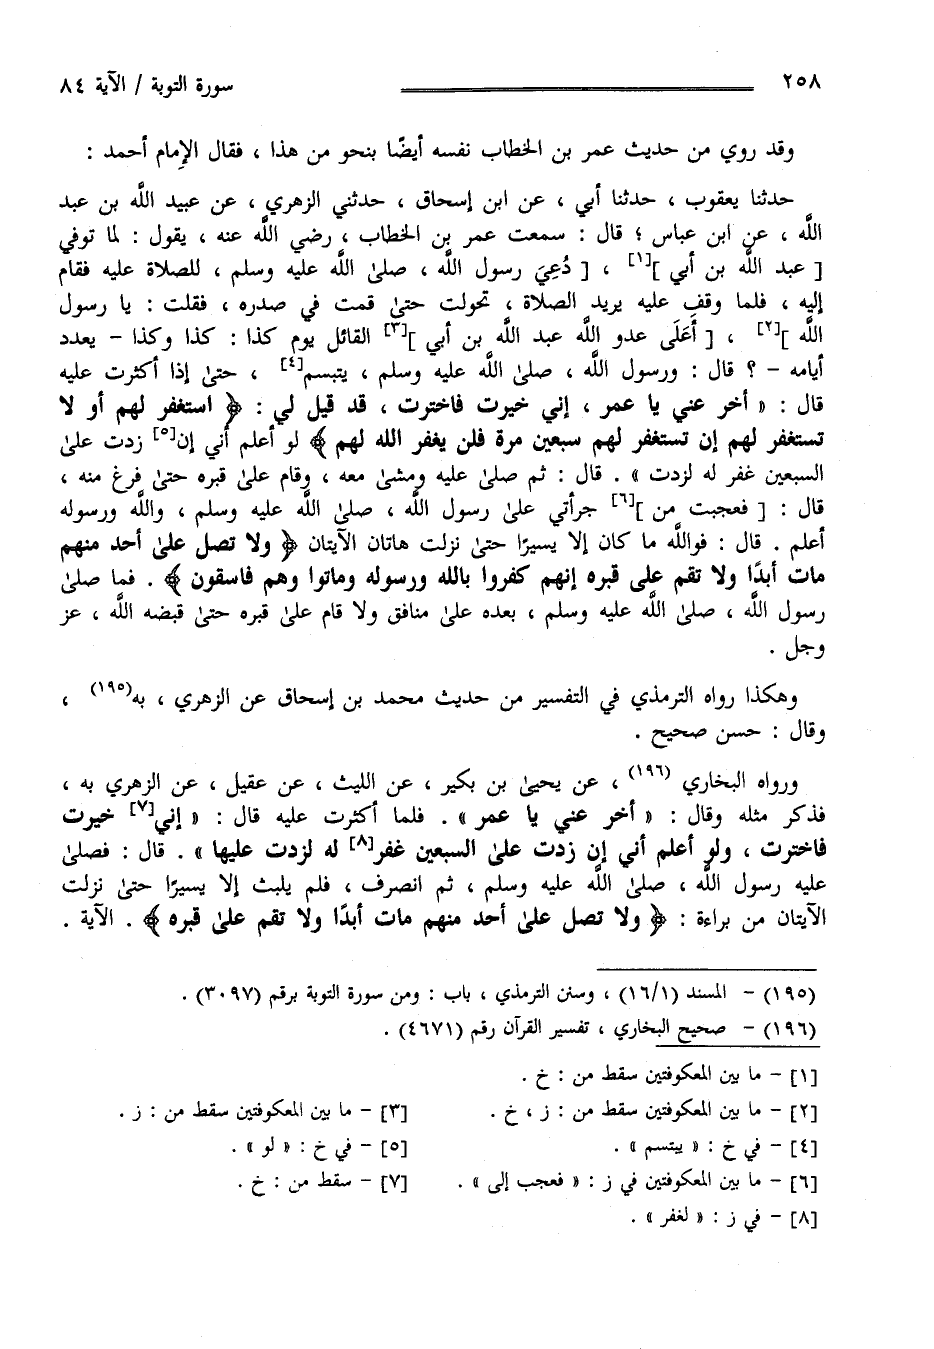 ٢٥٨ سورة التوبة / الآية ٨٤
وقد روي من حديث عمر بن الخطاب نفسه أيضًا بنحو من هذا ، فقال الإمام أحمد :
حدثنا يعقوب ، حدثنا أبي ، عن ابن إسحاق ، حدثني الزهري ، عن عبيد اللَّه بن عبد
اللَّه ، عن ابن عباس ؛ قال : سمعت عمر بن الخطاب ، رضي اللَّه عنه ، يقول : لما توفي
[ عبد اللَّه بن أبي ][١] ، [ دُعِيَ رسول اللَّه ، صلىٰ اللَّه عليه وسلم ، للصلاة عليه فقام
إليه ، فلما وقف عليه يريد الصلاة ، تحولت حتىٰ قمت في صدره ، فقلت : يا رسول
اللَّه ][٢] ، [ أَعَلَى عدو اللَّه عبد اللَّه بن أبي ][٣] القائل يوم كذا : كذا وكذا - يعدد
أيامه - ؟ قال : ورسول اللَّه ، صلىٰ اللَّه عليه وسلم ، يتبسم[٤] ، حتىٰ إذا أكثرت عليه
قال : « أخر عني يا عمر ، إني خيرت فاخترت ، قد قيل لي : ﴿ استغفر لهم أو لا
تستغفر لهم إن تستغفر لهم سبعين مرة فلن يغفر الله لهم ﴾ لو أعلم أني إن[٥] زدت علىٰ
السبعين غفر له لزدت » . قال : ثم صلىٰ عليه ومشىٰ معه ، وقام علىٰ قبره حتىٰ فرغ منه ،
قال : [ فعجبت من ][٦] جرأتي علىٰ رسول اللَّه ، صلىٰ اللَّه عليه وسلم ، واللَّه ورسوله
أعلم . قال : فواللَّه ما كان إلا يسيرًا حتىٰ نزلت هاتان الآيتان ﴿ ولا تصل علىٰ أحد منهم
مات أبدًا ولا تقم على قبره إنهم كفروا بالله ورسوله وماتوا وهم فاسقون ﴾ . فما صلىٰ
رسول اللَّه ، صلىٰ اللَّه عليه وسلم ، بعده علىٰ منافق ولا قام علىٰ قبره حتىٰ قبضه اللَّه ، عز
وجل .
وهكذا رواه الترمذي في التفسير من حديث محمد بن إسحاق عن الزهري ، به(١٩٥) ،
وقال : حسن صحيح .
ورواه البخاري (١٩٦) ، عن يحيىٰ بن بكير ، عن الليث ، عن عقيل ، عن الزهري به ،
فذكر مثله وقال : « أخر عني يا عمر » . فلما أكثرت عليه قال : « إني[٧] خيرت
فاخترت ، ولو أعلم أني إن زدت علىٰ السبعين غفر[٨] له لزدت عليها » . قال : فصلىٰ
عليه رسول اللَّه ، صلىٰ اللَّه عليه وسلم ، ثم انصرف ، فلم يلبث إلا يسيرًا حتىٰ نزلت
الآيتان من براءة : ﴿ ولا تصل علىٰ أحد منهم مات أبدًا ولا تقم علىٰ قبره ﴾ . الآية .
(١٩٥) - المسند (١٦/١) ، وسنن الترمذي ، باب : ومن سورة التوبة برقم (٣٠٩٧) .
(١٩٦) - صحيح البخاري ، تفسير القرآن رقم (٤٦٧١) .
[١] - ما بين المعكوفتين سقط من : خ .
[٢] - ما بين المعكوفتين سقط من : ز ، خ . [٣] - ما بين المعكوفتين سقط من : ز .
[٤] - في خ : « يبتسم » . [٥] - في خ : « لو » .
[٦] - ما بين المعكوفتين في ز : « فعجب إلى » . [٧] - سقط من : خ .
[٨] - في ز : « لغفر » .